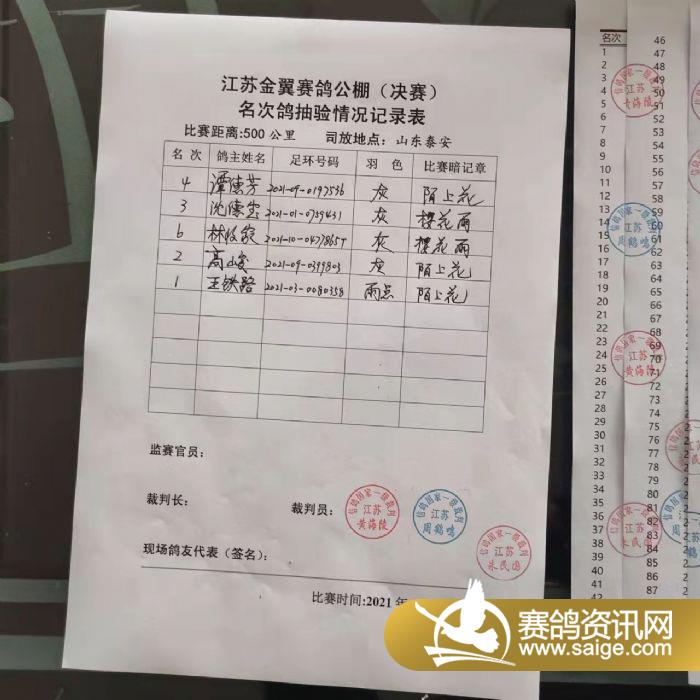 江苏金翼赛鸽公棚（决赛）
名次鸽抽验情况记录表
比赛距离:500 公里 司放地点：山东泰安
名 次 鸽主姓名 足环号码 羽 色 比赛暗记章
4 谭德芳 2021-09-0197536 灰 陌上花
3 沈德宝 2021-01-0739431 灰 樱花雨
6 林牧家 2021-10-0477865 灰 樱花雨
2 高山峻 2021-09-0399803 灰 陌上花
1 王铁路 2021-03-0080358 雨点 陌上花
监赛官员：
裁判长： 裁判员：
信鸽国家一级裁判 江苏 黄海陵
信鸽国家一级裁判 江苏 周鹤鸣
信鸽国家一级裁判 江苏 朱民国
现场鸽友代表（签名）：
比赛时间:2021 年
名次
1
2
3
4
5
6
7
8
9
10
11
12
13
14
15
16
17
18
19
20
21
22
23
24
25
26
27
28
29
30
31
32
33
34
35
36
37
38
39
40
41
42
46
47
48
49
50
51
52
53
54
55
56
57
58
59
60
61
62
63
64
65
66
67
68
69
70
71
72
73
74
75
76
77
78
79
80
81
82
83
84
85
86
87
江苏 黄海陵
江苏 周鹤鸣
江苏 黄海陵
江苏 朱民国
赛鸽资讯网
www.saige.com